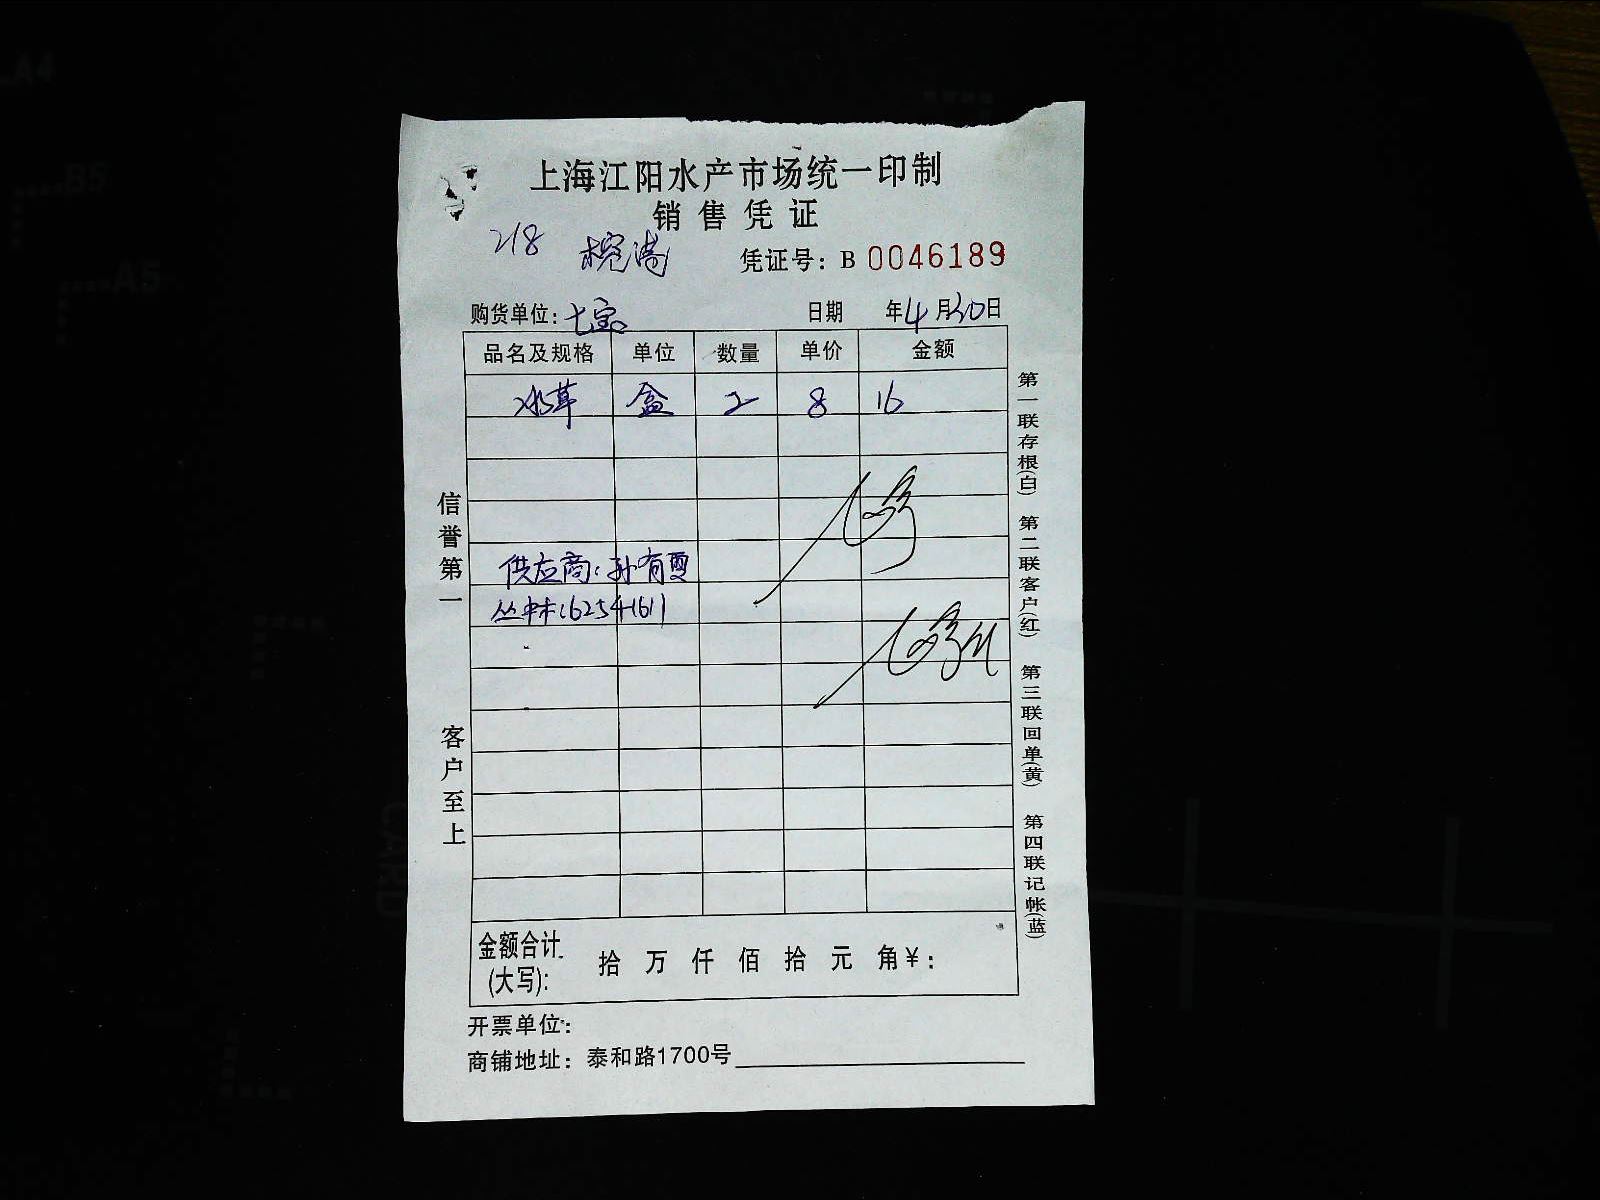 上海江阳水产市场统一印制
销售凭证
218
凭证号：B 0046189
购货单位：七宝 日期 年4月30日
品名及规格 单位 数量 单价 金额
水草 盒 2 8 16
供应商：孙有
162541611
金额合计(大写)： 拾 万 仟 佰 拾 元 角￥：
开票单位：
商铺地址：泰和路1700号
信誉第一
客户至上
第一联存根(白) 第二联客户(红) 第三联回单(黄) 第四联记帐(蓝)
A4
B5
A5
CARD